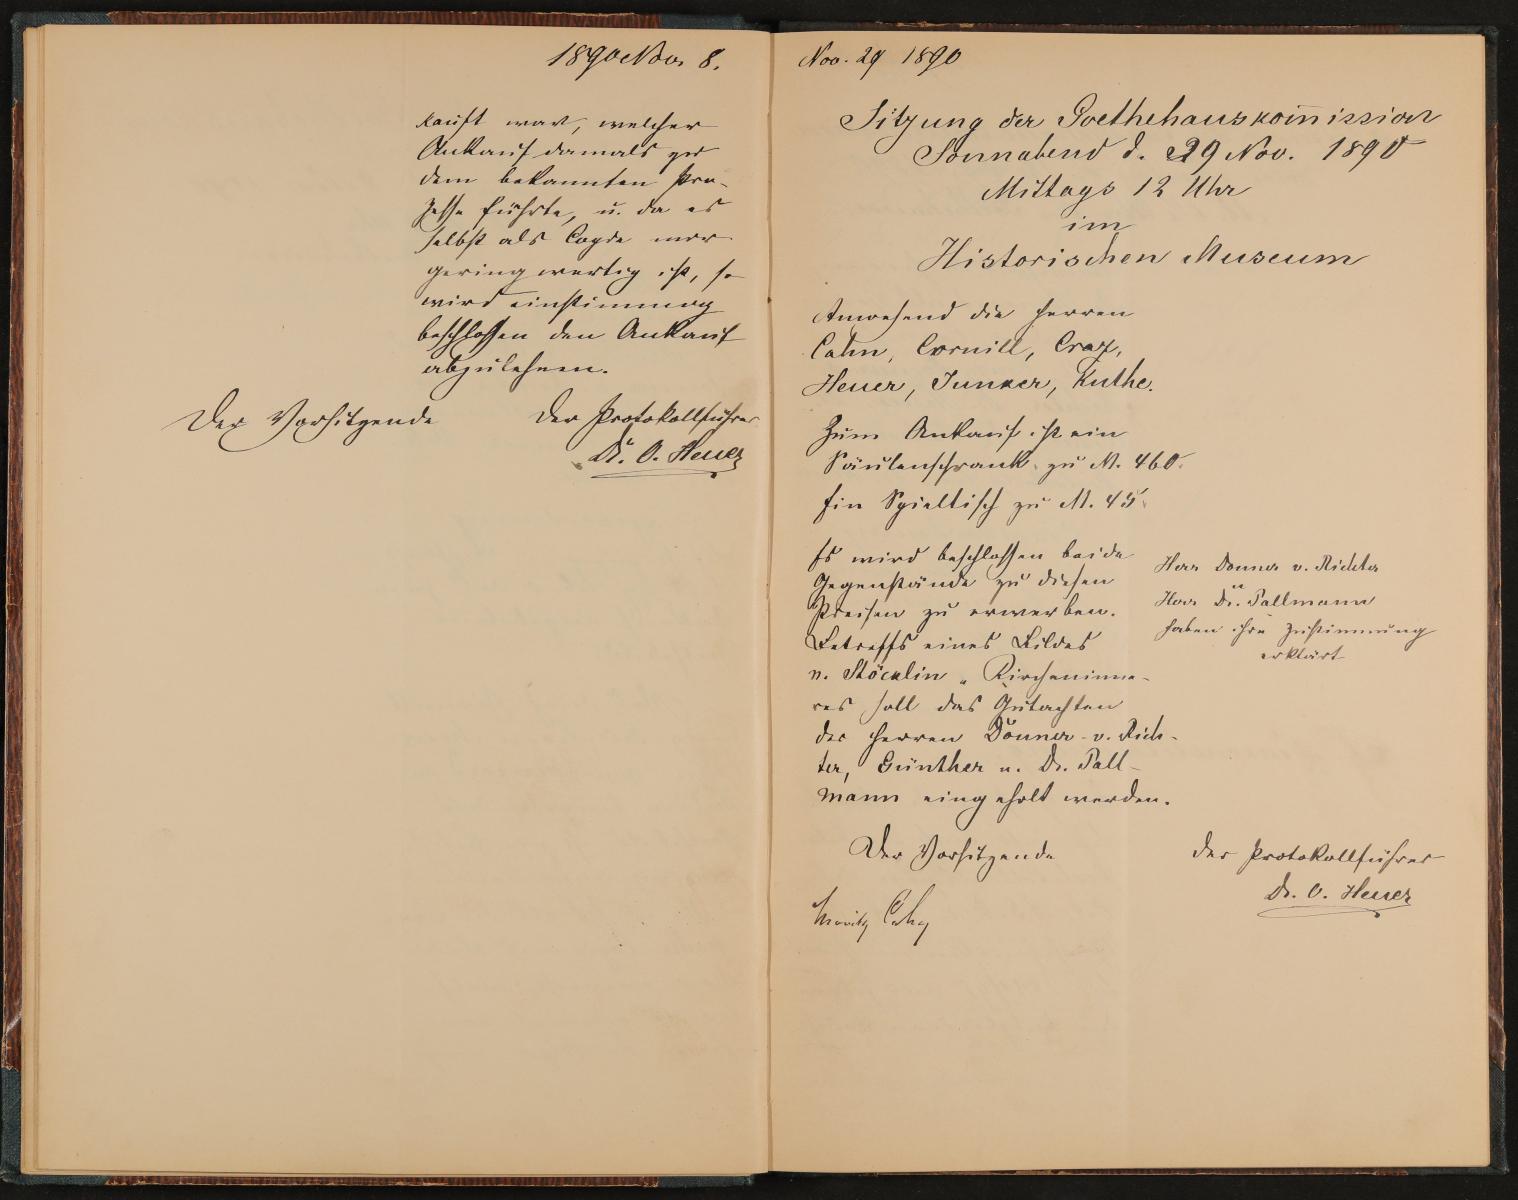 1890 Nov. 8.
kauft war, welcher
Ankauf damals zu
dem bekannten Pro-
zesse führte, u. da es
selbst als Copie nur
geringwertig ist, so
wird einstimmig
beschlossen den Ankauf
abzulehnen.
Der Vorsitzende
Der Protokollführer
Dr. O. Heuer
Nov. 29 1890
Sitzung der Goethehauskom̄ission
Sonnabend d. 29 Nov. 1890
Mittags 12 Uhr
im
Historischen Museum
Anwesend die Herren
Cahn, Cornill, Creiz,
Heuer, Junker, Kuthe.
Zum Ankauf ist ein
Säulenschrank zu M. 460.
Ein Spieltisch zu M. 45.
Es wird beschlossen beide
Gegenstände zu diesen
Preisen zu erwerben.
Betreffs eines Bildes
v. Stöcklin „Kircheninne-
res soll das Gutachten
der Herren Donner-v. Rich-
ter, Günther u. Dr. Pall-
mann eingeholt werden.
Herr Donner v. Richter
u
Herr Dr. Pallmann
haben ihre Zustimmung
erklärt
Der Vorsitzende
Moritz Cahn
der Protokollführer
Dr. O. Heuer